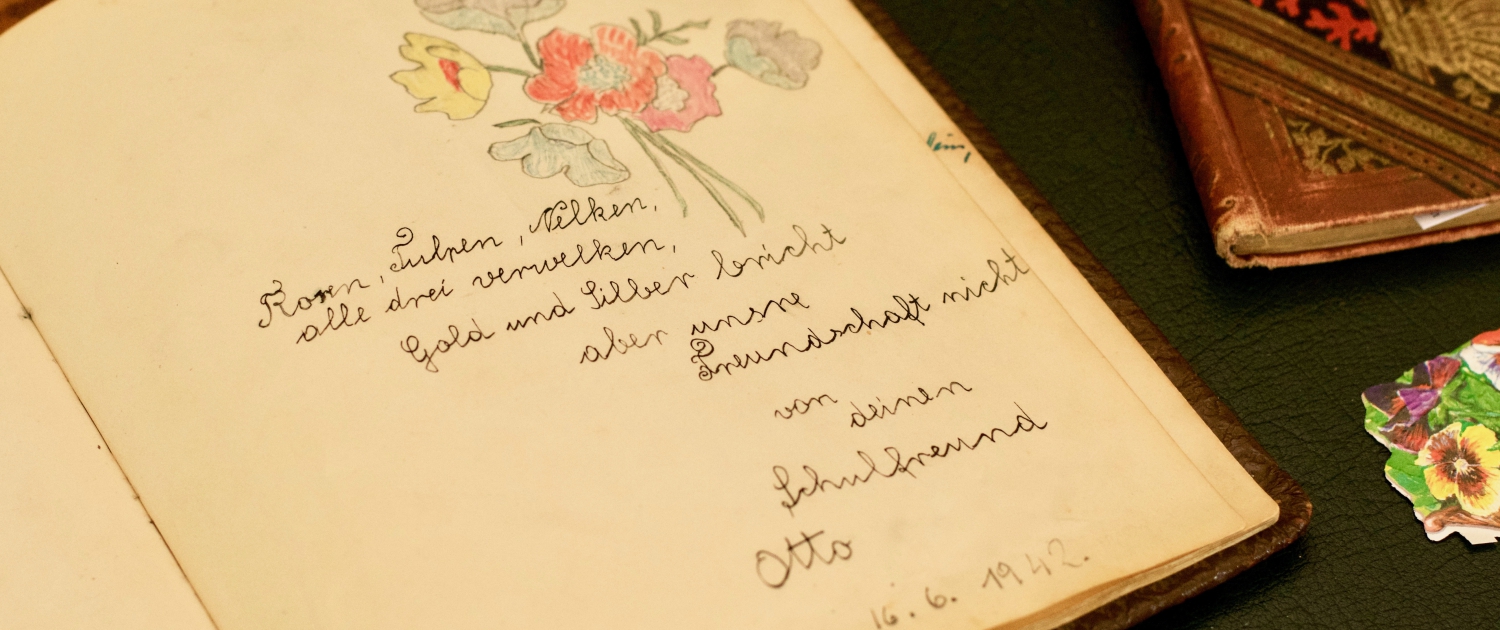 Rosen, Tulpen, Nelken,
alle drei verwelken,
Gold und Silber bricht
aber unsre
Freundschaft nicht
von
deinen
Schulfreund
Otto
16.6.1942.